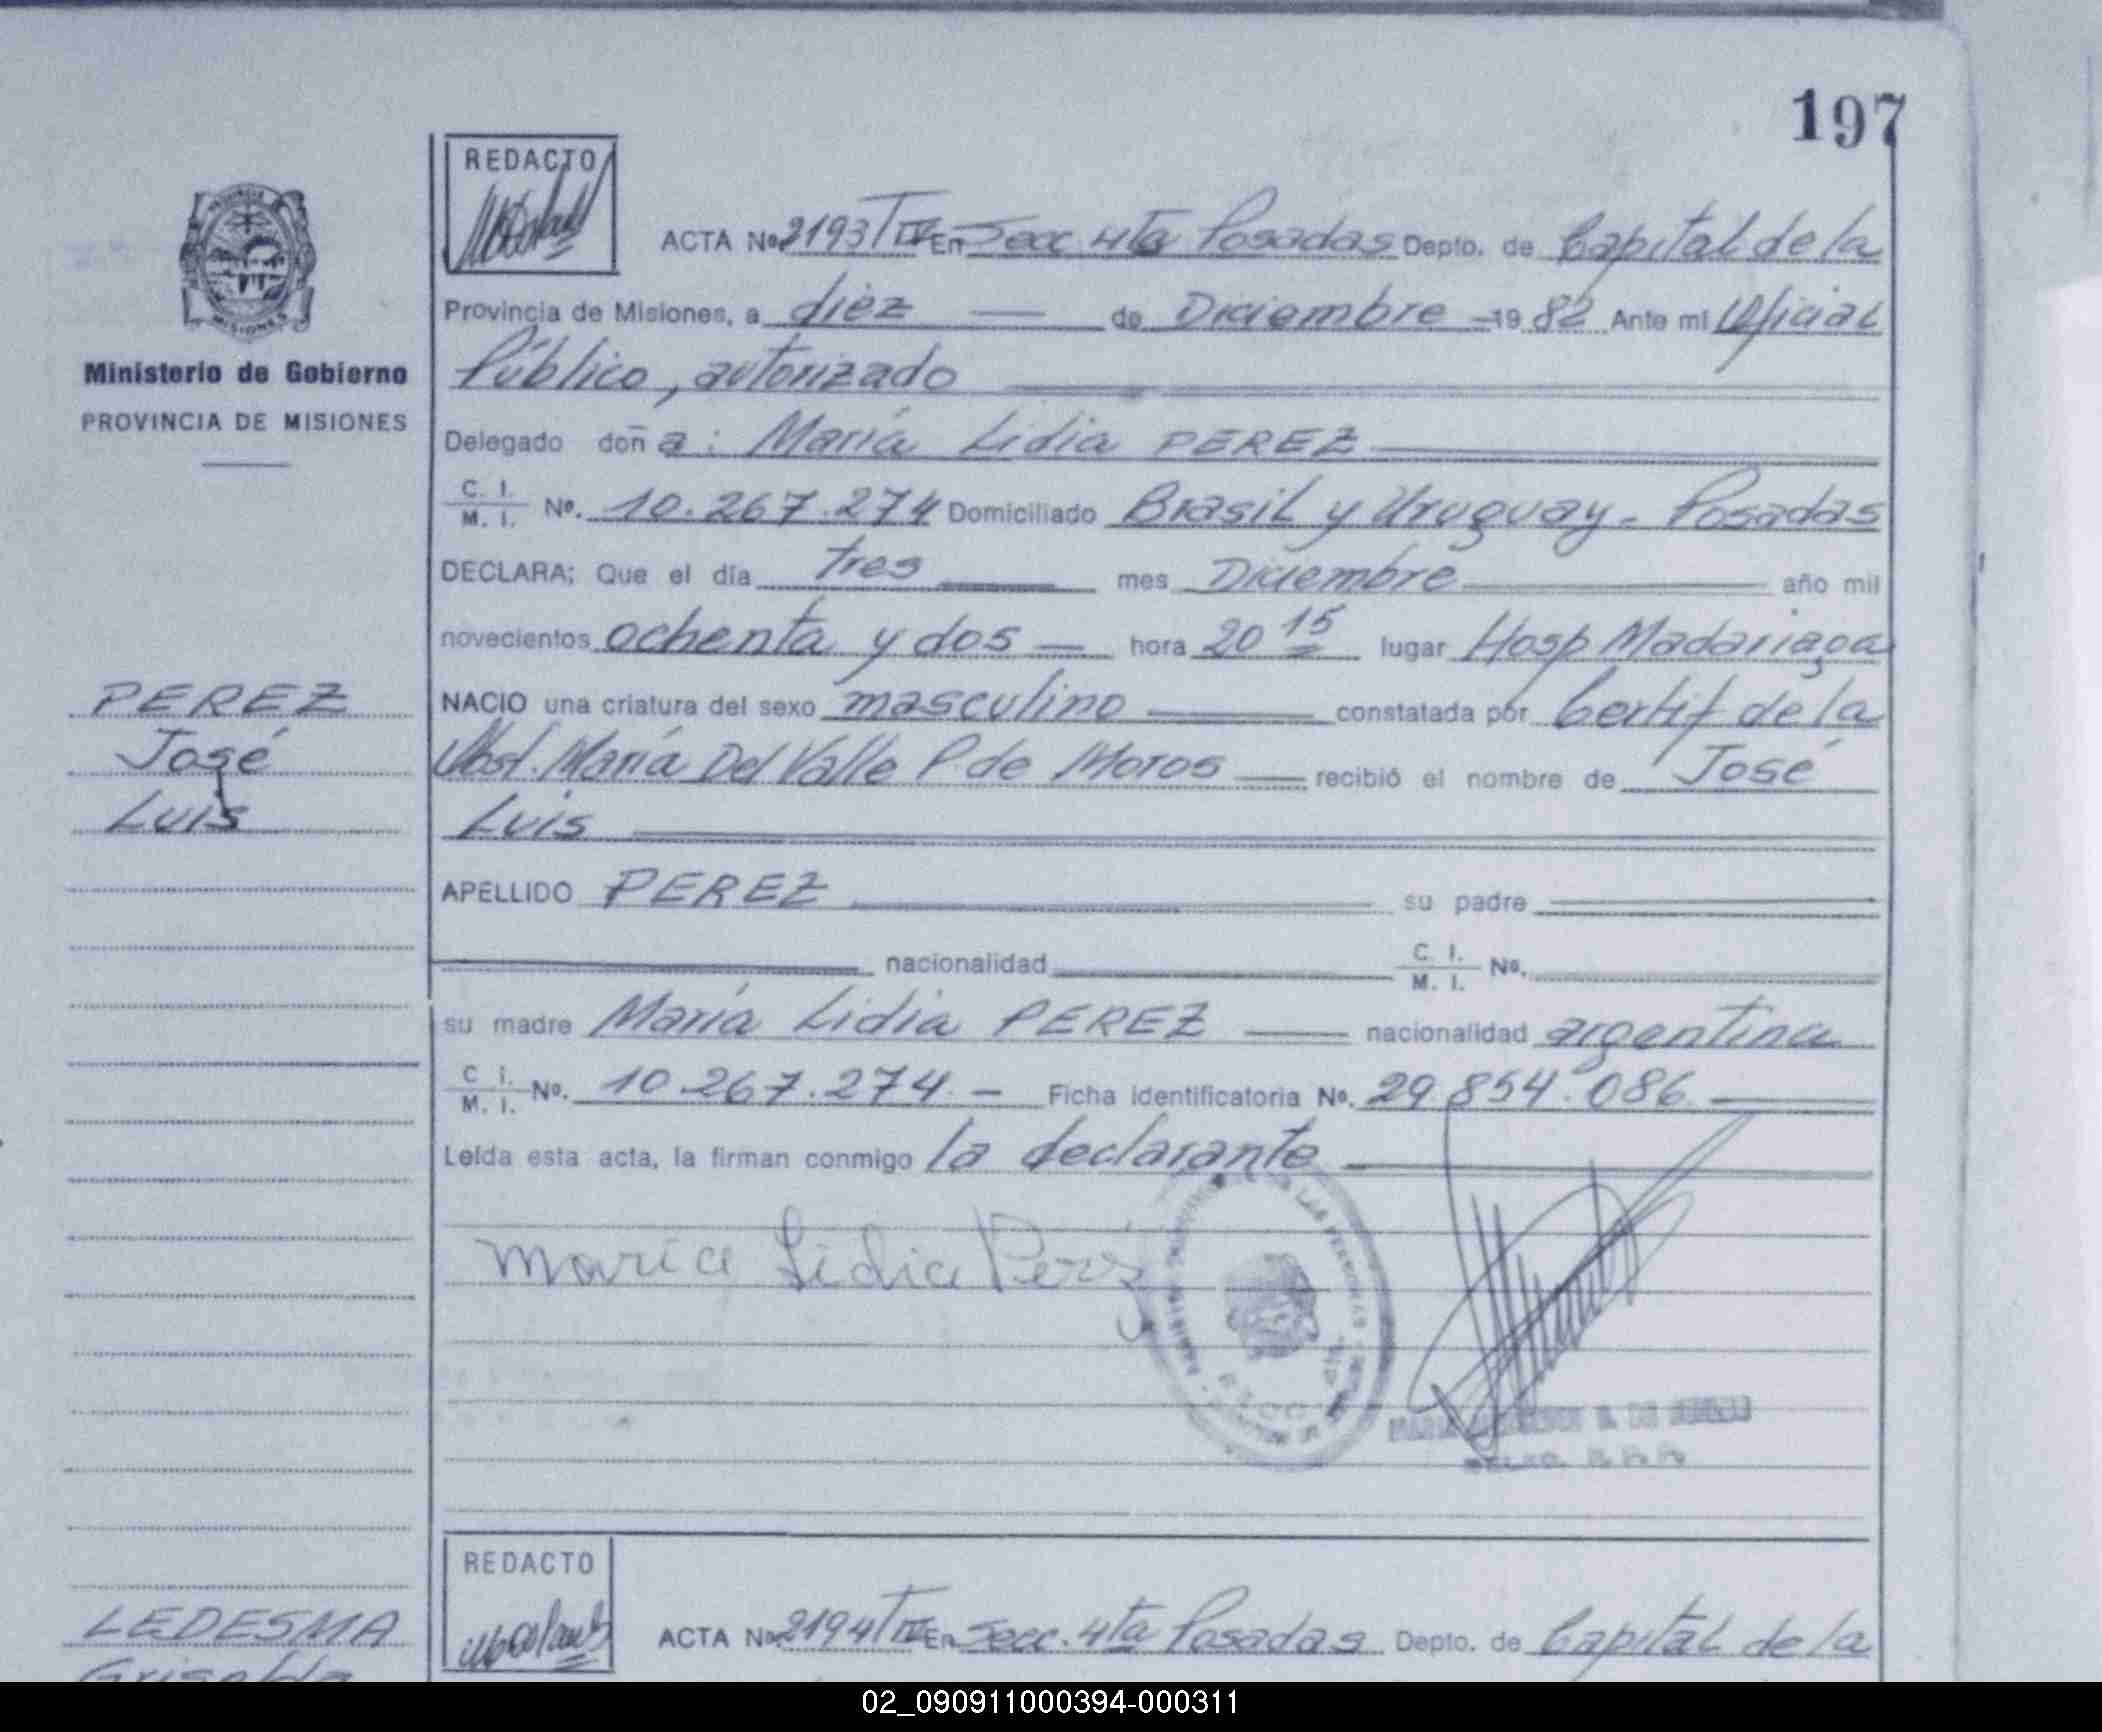 197
REDACTO
ACTA Nº 2193 T IV En Secc. 4ta Posadas Depto. de Capital de la
Provincia de Misiones, a diez de Diciembre 19 82 Ante mi Oficial
Público, autorizado
Delegado doña: María Lidia PEREZ
C. I. / M. I. Nº. 10.267.274 Domiciliado Brasil y Uruguay - Posadas
DECLARA; Que el día tres mes Diciembre año mil
novecientos ochenta y dos hora 20 15 lugar Hosp Madariaga
NACIO una criatura del sexo masculino constatada por Certif de la
Obst. María Del Valle P. de Moros recibió el nombre de José
Luis
APELLIDO PEREZ su padre
nacionalidad C. I. / M. I. Nº.
su madre María Lidia PEREZ nacionalidad argentina
C. I. / M. I. Nº. 10.267.274. - Ficha identificatoria Nº. 29.854.086.
Leída esta acta, la firman conmigo la declarante
Maria Lidia Perez
PROVINCIA
MISIONES
Ministerio de Gobierno
PROVINCIA DE MISIONES
PEREZ
José
Luis
LAS PERSONAS
REDACTO
ACTA Nº 2194 T IV En Secc. 4ta Posadas Depto. de Capital de la
LEDESMA
Griselda
02_090911000394-000311